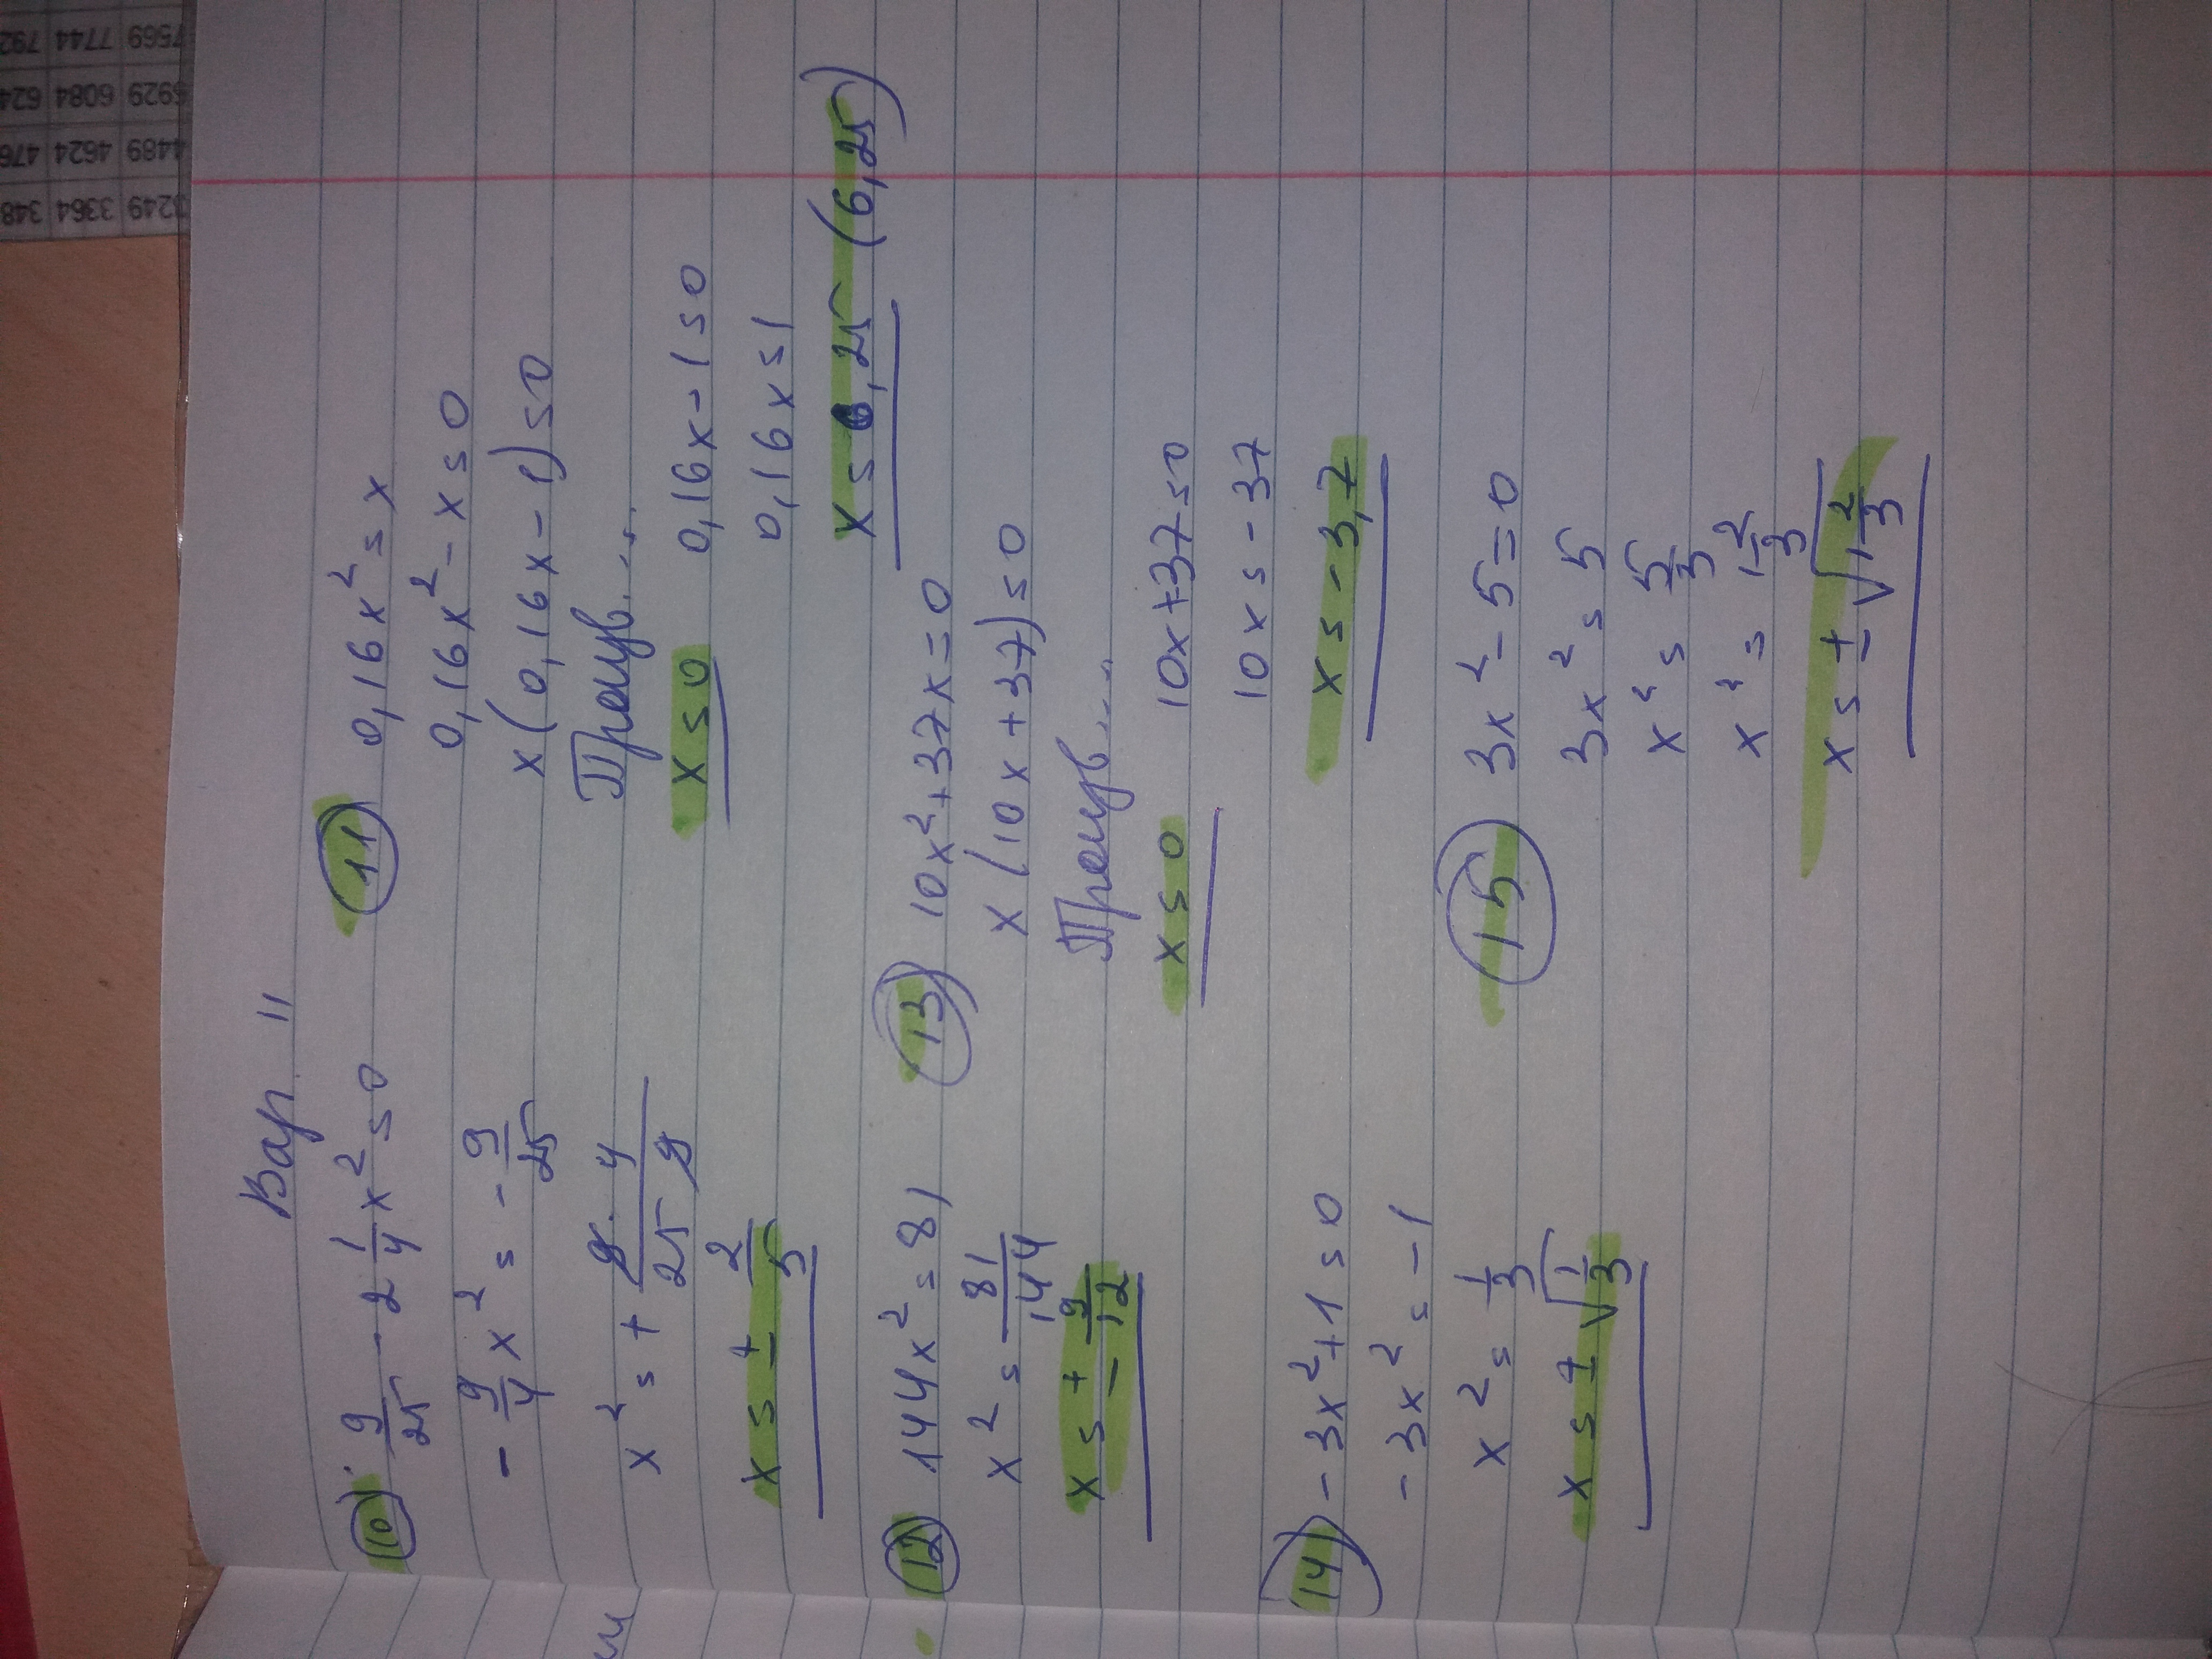 Вар 11
10) 9/25 - 2 1/4 x² = 0
- 9/4 x² = - 9/25
x² = + 9·4/25 9
x = ± 2/5
11) 0,16x² = x
0,16x² - x = 0
x(0,16x - 1) = 0
Произв...
x = 0 0,16x - 1 = 0
0,16x = 1
x = 6,25 (6,25)
12) 144x² = 81
x² = 81/144
x = ± 9/12
13) 10x² + 37x = 0
x(10x + 37) = 0
Произв...
x = 0 10x + 37 = 0
10x = -37
x = -3,7
14) -3x² + 1 = 0
-3x² = -1
x² = 1/3
x = ± √1/3
15) 3x² - 5 = 0
3x² = 5
x² = 5/3
x² = 1 2/3
x = ± √1 2/3
7569 7744 792
5929 6084 624
4489 4624 476
3249 3364 348